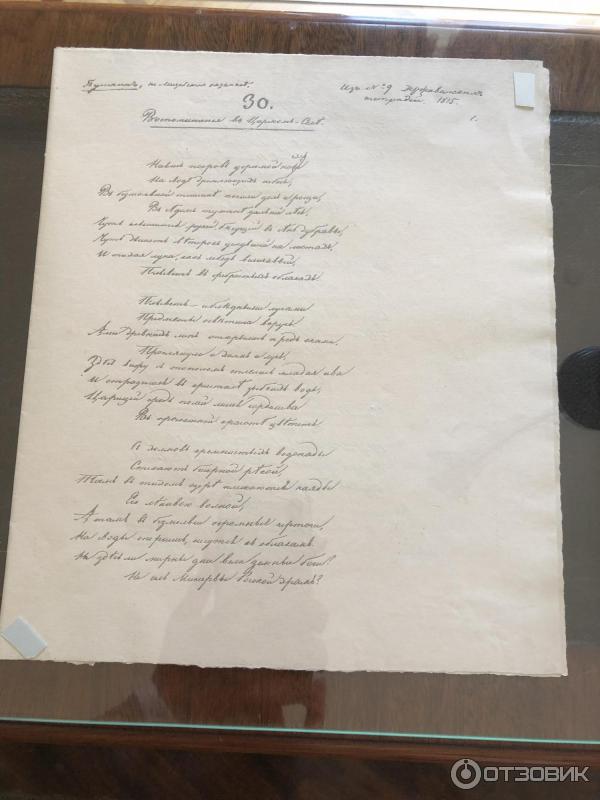 Пушкинъ,
Изъ № 9 Державинской
тетради, 1815.
30.
1.
Воспоминанія въ Царскомъ-Селѣ.
Нависъ покровъ угрюмой нощи
На сводѣ дремлющихъ небесъ;
Въ безмолвной тишинѣ почили долъ и рощи,
Въ сѣдомъ туманѣ дальній лѣсъ;
Чуть слышится ручей, бѣгущій въ сѣнь дубравы,
Чуть дышетъ вѣтерокъ уснувшій на листахъ,
И тихая луна, какъ лебедь величавый,
Плывётъ въ сребристыхъ облакахъ.
Плывётъ — и блѣдными лучами
Предметы освѣтила вкругъ
Аллеи древнихъ липъ открылись предъ очами,
Проглянули и холмъ и лугъ;
Здѣсь вижу съ тополемъ сплелась младая ива
И отразилась въ кристалѣ зыбкихъ водъ;
Царицей средь полей лилея горделива
Въ роскошной красотѣ цвѣтётъ
Съ холмовъ кремнистыхъ водопады
Стекаютъ бисерной рѣкой,
Тамъ въ тихомъ озерѣ плескаются наяды
Его лѣнивою волной;
А тамъ въ безмолвіи огромные чертоги,
На своды опершись, несутся къ облакамъ.
Не здѣсь ли мирны дни вели земные боги?
Не се ль Минервы Росской храмъ?
ОТЗОВИК